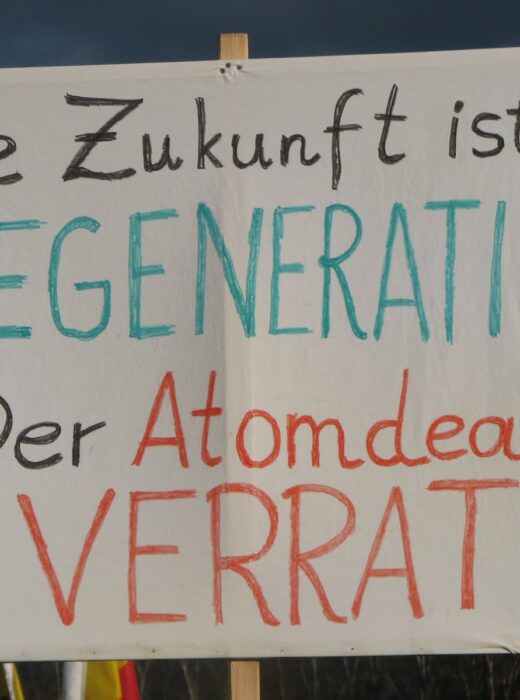 e Zukunft ist
EGENERATI
Der Atomdea
VERRAT